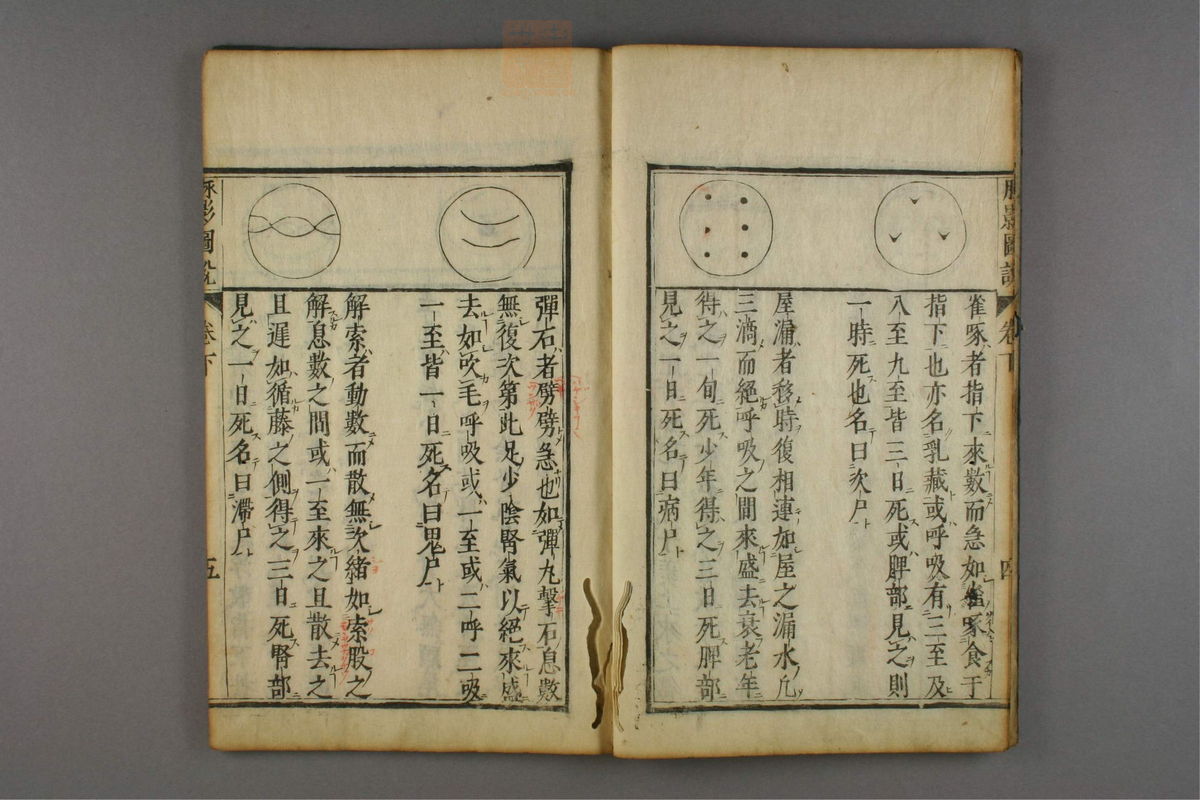 雀啄者指下來數而急如雀啄食于
指下也亦名乳藏或呼吸有三至及
入至九至皆三日死或脾部見之則
一時死也名曰次尸
屋漏者移時復相連如屋之漏水凢
三滴而絕呼吸之間來盛去衰老年
得之一旬死少年得之三日死脾部
見之一日死名曰病尸
卷下
四
彈石者劈劈急也如彈丸擊石息數
無復次第此足少陰腎氣以絕來盛
去如吹毛呼吸或一至或二呼二吸
一至皆一日死名曰鬼尸
解索者動數而散無次緒如索股之
解息數之間或一至來之且散去之
且遲如循藤之側得之三日死腎部
見之一日死名曰滯尸
脉影圖說
卷下
五